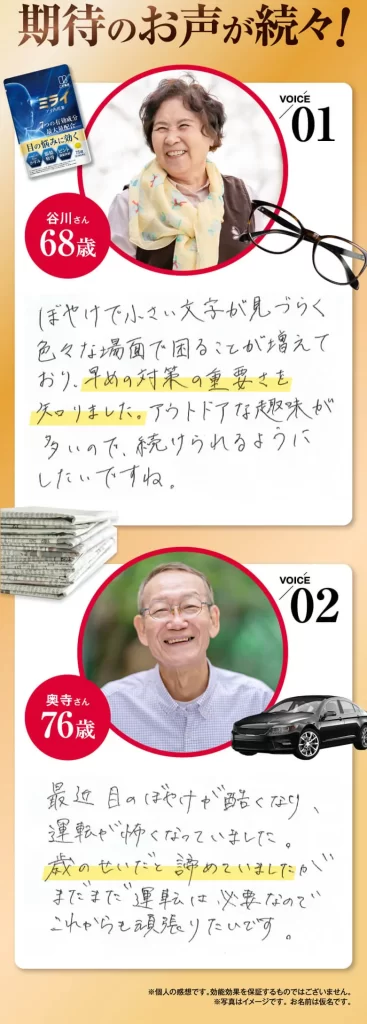 期待のお声が続々!
ミライ
7つの有効成分
最大量配合
目の悩みに効く
VOICE 01
谷川さん
68歳
ぼやけで小さい文字が見づらく
色々な場面で困ることが増えて
おり、早めの対策の重要さを
知りました。アウトドアな趣味が
多いので、続けられるように
したいですね。
VOICE 02
奥寺さん
76歳
最近 目のぼやけが酷くなり、
運転が怖くなっていました。
歳のせいだと諦めていましたが
まだまだ運転は必要なので
これからも頑張りたいです。
※個人の感想です。効能効果を保証するものではございません。
※写真はイメージです。お名前は仮名です。